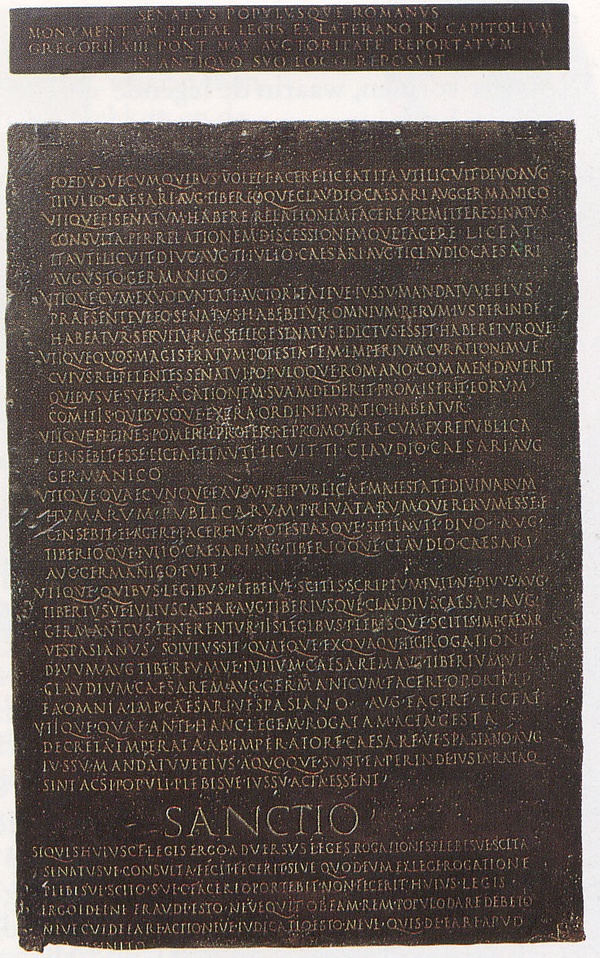 SENATVS POPVLVSQVE ROMANVS
MONVMENTVM REGIAE LEGIS EX LATERANO IN CAPITOLIVM
GREGORII XIII PONT MAX AVCTORITATE REPORTATVM
IN ANTIQVO SVO LOCO REPOSVIT
FOEDVSVE CVM QVIBVS VOLET FACERE LICEAT ITA VTI LICVIT DIVO AVG
TI IVLIO CAESARI AVG TIBERIOQVE CLAVDIO CAESARI AVG GERMANICO
VTIQVE EI SENATVM HABERE RELATIONEM FACERE REMITTERE SENATVS
CONSVLTA PER RELATIONEM DISCESSIONEMQVE FACERE LICEAT
ITA VTI LICVIT DIVO AVG TI IVLIO CAESARI AVG TI CLAVDIO CAESARI
AVGVSTO GERMANICO
VTIQVE CVM EX VOLVNTATE AVCTORITATEVE IVSSV MANDATVVE EIVS
PRAESENTEVE EO SENATVS HABEBITVR OMNIVM RERVM IVS PERINDE
HABEATVR SERVETVR AC SI E LEGE SENATVS EDICTVS ESSET HABERETVRQVE
VTIQVE QVOS MAGISTRATVM POTESTATEM IMPERIVM CVRATIONEMVE
CVIVS REI PETENTES SENATVI POPVLOQVE ROMANO COMMENDAVERIT
QVIBVSVE SVFFRAGATIONEM SVAM DEDERIT PROMISERIT EORVM
COMITIS QVIBVSQVE EXTRA ORDINEM RATIO HABEATVR
VTIQVE EI FINES POMERII PROFERRE PROMOVERE CVM EX REPVBLICA
CENSEBIT ESSE LICEAT ITA VTI LICVIT TI CLAVDIO CAESARI AVG
GERMANICO
VTIQVE QVAECVNQVE EX VSV REI PVBLICAE MAIESTATE DIVINARVM
HVMARVM PVBLICARVM PRIVATARVMQVE RERVM ESSE E
CENSEBIT EI AGERE FACERE IVS POTESTASQVE SIT ITA VTI DIVO AVG
TIBERIOQVE IVLIO CAESARI AVG TIBERIOQVE CLAVDIO CAESARI
AVG GERMANICO FVIT
VTIQVE QVIBVS LEGIBVS PLEBEIVE SCITIS SCRIPTVM FVIT NE DIVVS AVG
TIBERIVSVE IVLIVS CAESAR AVG TIBERIVSQVE CLAVDIVS CAESAR AVG
GERMANICVS TENERENTVR IIS LEGIBVS PLEBISQVE SCITIS IMP CAESAR
VESPASIANVS SOLVTVS SIT QVAEQVE EX QVAQVE LEGE ROGATIONE
DIVVM AVG TIBERIVMVE IVLIVM CAESAREM AVG TIBERIVMVE
CLAVDIVM CAESAREM AVG GERMANICVM FACERE OPORTVIT
EA OMNIA IMP CAESARI VESPASIANO AVG FACERE LICEAT
VTIQVE QVAE ANTE HANC LEGEM ROGATAM ACTA GESTA
DECRETA IMPERATA AB IMPERATORE CAESARE VESPASIANO AVG
IVSSV MANDATVVE EIVS A QVOQVE SVNT EA PERINDE IVSTA RATAQ
SINT AC SI POPVLI PLEBISVE IVSSV ACTA ESSENT
SANCTIO
SI QVIS HVIVSCE LEGIS ERGO ADVERSVS LEGES ROGATIONES PLEBISVE SCITA
SENATVSVE CONSVLTA FECIT FECERIT SIVE QVOD EVM EX LEGE ROGATIONE
PLEBISVE SCITO S VE C FACERE OPORTEBIT NON FECERIT HVIVS LEGIS
ERGO ID EI NE FRAVDI ESTO NEVE QVIT OB EAM REM POPVLO DARE DEBETO
NEVE CVI DE EA RE ACTIO NEVE IVDICATIO ESTO NEVE QVIS DE EA RE APVD
SINITO